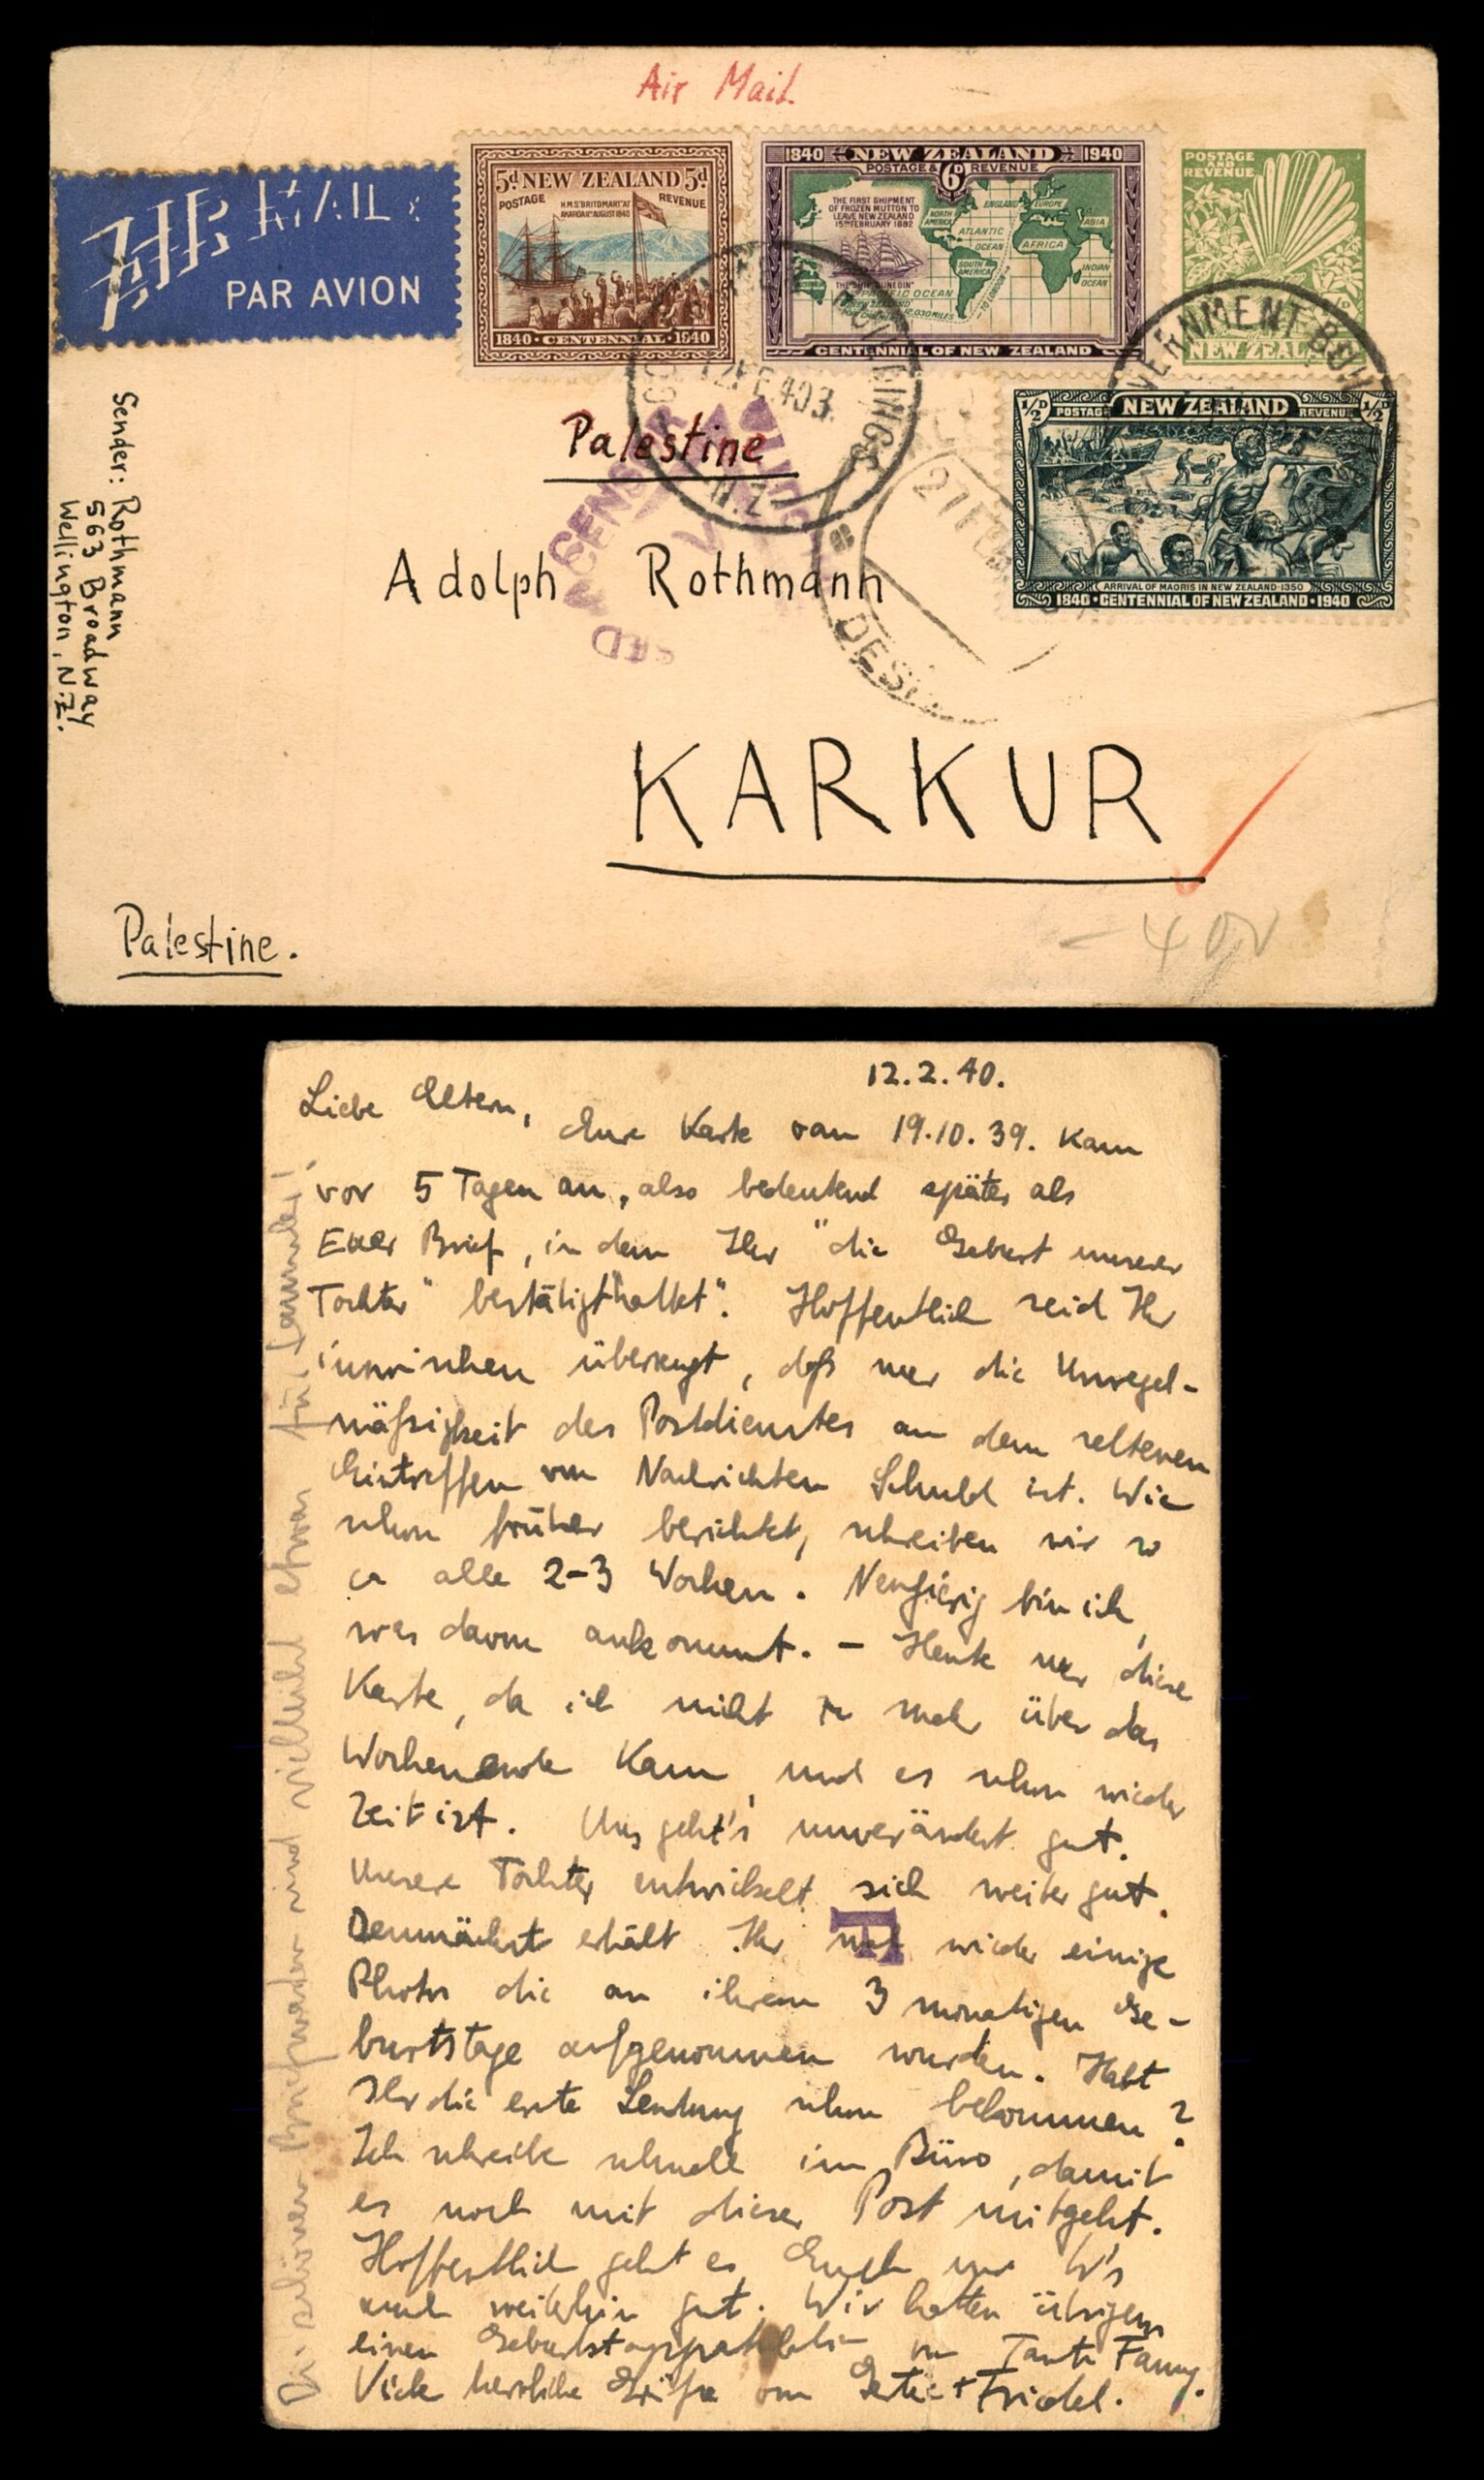 Air Mail
AIR MAIL
PAR AVION
5d NEW ZEALAND 5d
POSTAGE REVENUE
H.M.S. "BRITOMART" AT
AKAROA 11TH AUGUST 1840
1840 · CENTENNIAL · 1940
1840 NEW ZEALAND 1940
POSTAGE & REVENUE
6D
THE FIRST SHIPMENT
OF FROZEN MUTTON TO
LEAVE NEW ZEALAND
15TH FEBRUARY 1882
NORTH AMERICA
ENGLAND
EUROPE
ASIA
ATLANTIC OCEAN
AFRICA
SOUTH AMERICA
INDIAN OCEAN
THE SHIP "DUNEDIN"
PACIFIC OCEAN
TO LONDON
CENTENNIAL OF NEW ZEALAND
POSTAGE
AND
REVENUE
NEW ZEAL
VERNMENT BU
½D POSTAGE NEW ZEALAND REVENUE ½D
ARRIVAL OF MAORIS IN NEW ZEALAND·1350
1840 · CENTENNIAL OF NEW ZEALAND · 1940
12 FE 40 3
N.Z.
27 FE
DES
Palestine
Adolph Rothmann
KARKUR
Palestine.
Sender: Rothmann
563 Broadway
Wellington, N.Z.
12.2.40.
Liebe Eltern,
Eure Karte vom 19.10.39. kam
vor 5 Tagen an, also bedeutend später als
Euer Brief, in dem Ihr "die Geburt unserer
Tochter" bestätigt "hattet". Hoffentlich seid Ihr
inzwischen überzeugt, daß nur die Unregel-
mäßigkeit des Postdienstes an dem seltenen
Eintreffen von Nachrichten Schuld ist. Wie
schon früher berichtet, schreiben wir so
ca alle 2-3 Wochen. Neugierig bin ich,
was davon ankommt. - Heute nur diese
Karte, da ich nicht zu mehr über das
Wochenende kam, und es schon wieder
Zeit ist. Uns geht's unverändert gut.
Unsere Tochter entwickelt sich weiter gut.
Demnächst erhält Ihr wieder einige
Photos die an ihrem 3 monatigen Ge-
burtstage aufgenommen wurden. Habt
Ihr die erste Sendung schon bekommen?
Ich schreibe schnell im Büro, damit
es noch mit dieser Post mitgeht.
Hoffentlich geht es Euch und W's
auch weiterhin gut. Wir hatten übrigens
einen von Tante Fanny.
Viele herzliche Grüße von Gertie + Friedel.
Die schönen Briefmarken sind vielleicht etwas für Sammler!